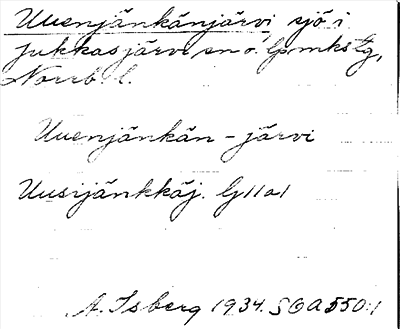 Uuenjänkänjärvi sjö i
Jukkasjärvi sn o. lpmkstg,
Norrb. l.
Uuenjänkän-järvi
Uusijänkkäj. G11a1
A. Isberg 1934. SOA 550:1